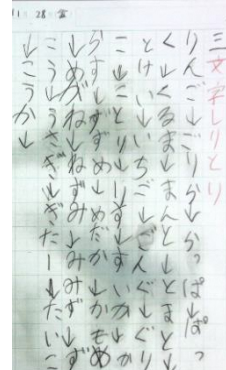 11・28・金
三文字しりとり
りんご→ごりか→かっぱ→ぱっ
く→くるま→まんと→まと→
とけい→いちご→
こ→ことり→りす→いか→か
らす→すずめ→めだか→かもめ
→めがね→ねずみ→みみず→
→うさぎ→ぎたー→たい
→こうか→